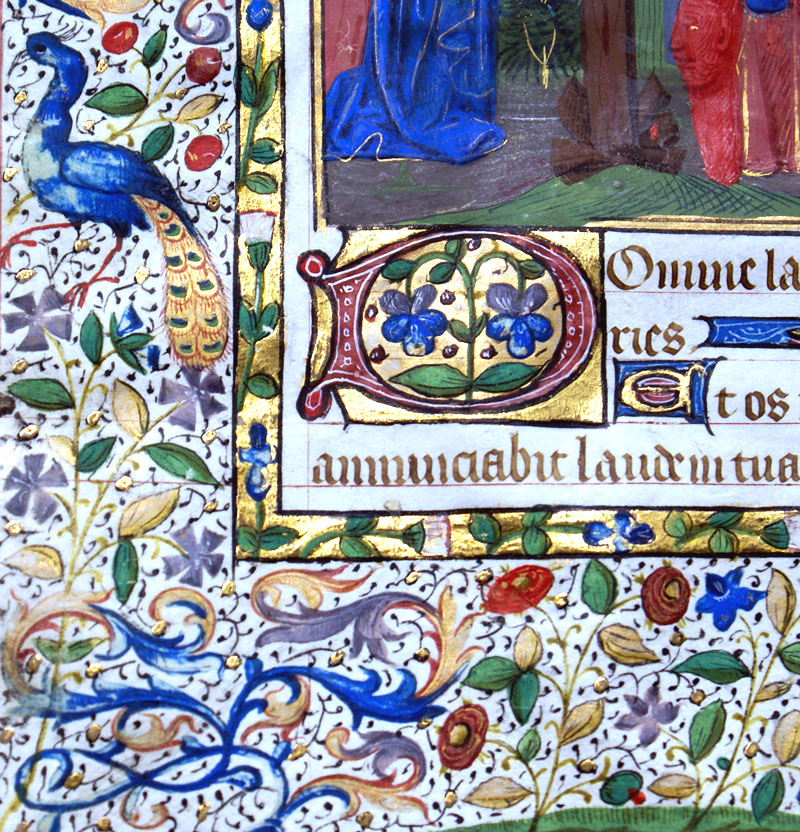 Domine la
ries
Et os
annunciabit laudem tua